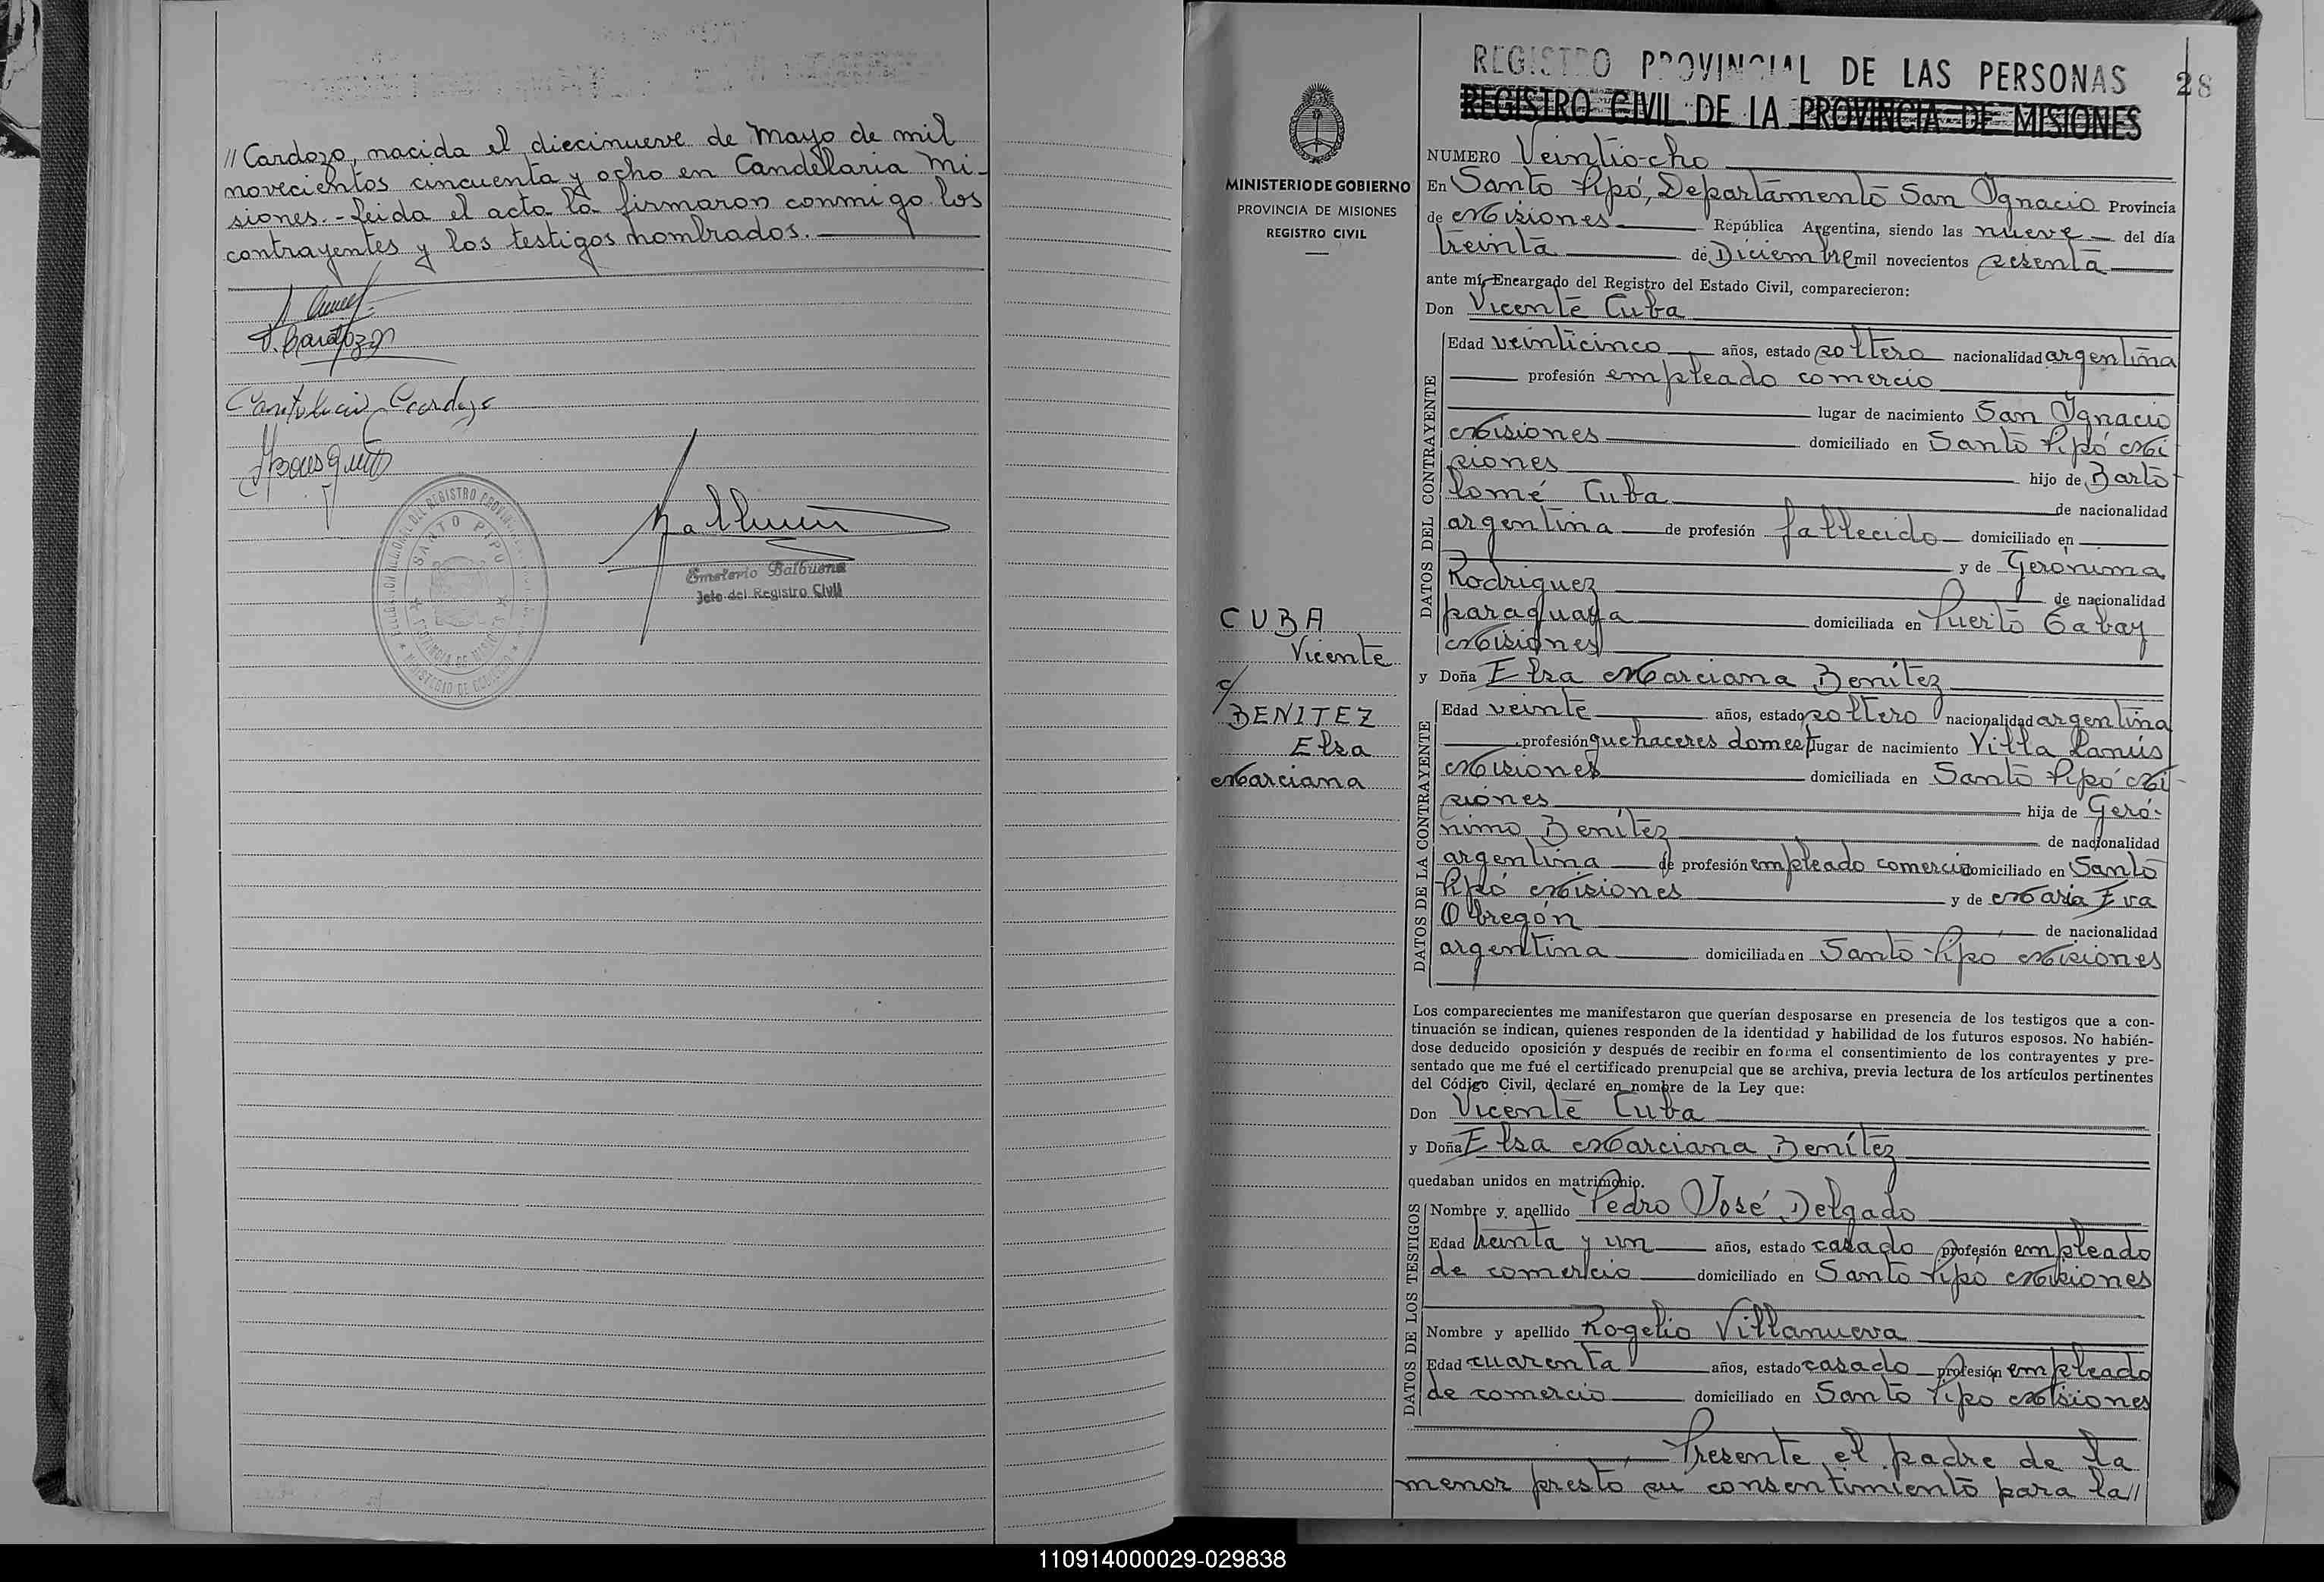 // Cardozo, nacida el diecinueve de Mayo de mil
novecientos cincuenta y ocho en Candelaria Mi-
siones.- Leida el acta la firmaron conmigo los
contrayentes y los testigos nombrados.
SANTO PIPO
Emeterio Balbuena
Jefe del Registro Civil
REGISTRO PROVINCIAL DE LAS PERSONAS
28
REGISTRO CIVIL DE LA PROVINCIA DE MISIONES
MINISTERIO DE GOBIERNO
PROVINCIA DE MISIONES
REGISTRO CIVIL
CUBA
Vicente
c/
BENITEZ
Elsa
Marciana
NUMERO Veintiocho
En Santo Pipó, Departamento San Ignacio Provincia
de Misiones República Argentina, siendo las nueve del día
treinta de Diciembre mil novecientos sesenta
ante mí, Encargado del Registro del Estado Civil, comparecieron:
Don Vicente Cuba
DATOS DEL CONTRAYENTE
Edad veinticinco años, estado soltero nacionalidad argentina
profesión empleado comercio
lugar de nacimiento San Ignacio
Misiones domiciliado en Santo Pipó Mi
siones hijo de Barto-
lomé Cuba de nacionalidad
argentina de profesión fallecido domiciliado en
y de Gerónima
Rodriguez de nacionalidad
paraguaya domiciliada en Puerto Gabay
Misiones
y Doña Elsa Marciana Benítez
DATOS DE LA CONTRAYENTE
Edad veinte años, estado soltero nacionalidad argentina
profesión quehaceres domest lugar de nacimiento Villa Lanús
Misiones domiciliada en Santo Pipó Mi-
siones hija de Geró-
nimo Benítez de nacionalidad
argentina de profesión empleado comercio domiciliado en Santo
Pipó Misiones y de María Eva
Obregón de nacionalidad
argentina domiciliada en Santo Pipó Misiones
Los comparecientes me manifestaron que querían desposarse en presencia de los testigos que a con-
tinuación se indican, quienes responden de la identidad y habilidad de los futuros esposos. No habién-
dose deducido oposición y después de recibir en forma el consentimiento de los contrayentes y pre-
sentado que me fué el certificado prenupcial que se archiva, previa lectura de los artículos pertinentes
del Código Civil, declaré en nombre de la Ley que:
Don Vicente Cuba
y Doña Elsa Marciana Benítez
quedaban unidos en matrimonio.
DATOS DE LOS TESTIGOS
Nombre y apellido Pedro José Delgado
Edad treinta y un años, estado casado profesión empleado
de comercio domiciliado en Santo Pipó Misiones
Nombre y apellido Rogelio Villanueva
Edad cuarenta años, estado casado profesión empleado
de comercio domiciliado en Santo Pipó Misiones
Presente el padre de la
menor prestó su consentimiento para la//
110914000029-029838